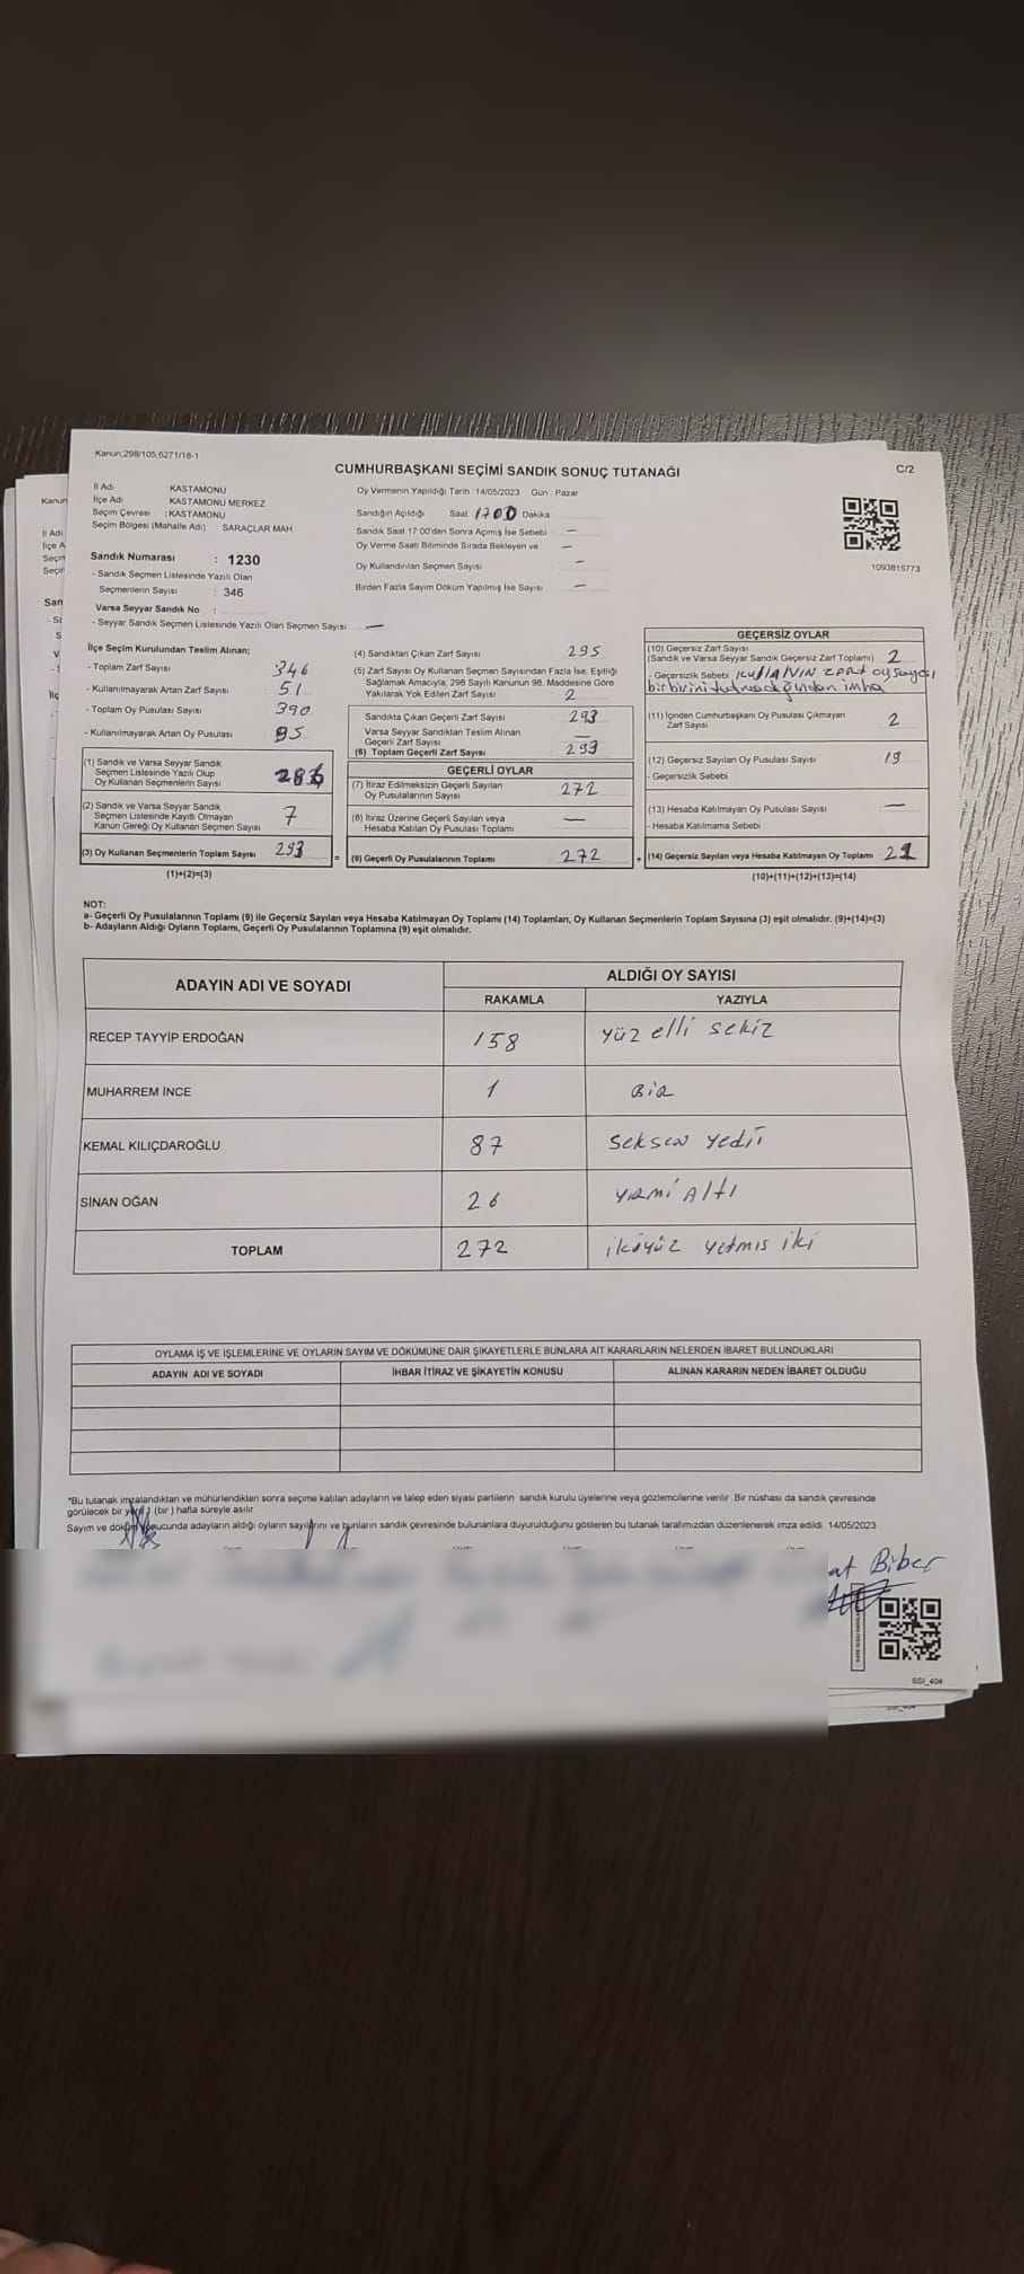 Kanun;298/105,6271/16-1
CUMHURBAŞKANI SEÇİMİ SANDIK SONUÇ TUTANAĞI
C/2
İl Adı KASTAMONU
İlçe Adı KASTAMONU MERKEZ
Seçim Çevresi :KASTAMONU
Seçim Bölgesi (Mahalle Adı) SARAÇLAR MAH
Sandık Numarası : 1230
- Sandık Seçmen Listesinde Yazılı Olan
Seçmenlerin Sayısı : 346
Varsa Seyyar Sandık No :
- Seyyar Sandık Seçmen Listesinde Yazılı Olan Seçmen Sayısı —
Oy Vermenin Yapıldığı Tarih :14/05/2023 Gün : Pazar
Sandığın Açıldığı Saat 1700 Dakika
Sandık Saat 17:00'dan Sonra Açılmış İse Sebebi —
Oy Verme Saati Bitiminde Sırada Bekleyen ve —
Oy Kullandırılan Seçmen Sayısı —
Birden Fazla Sayım Döküm Yapılmış İse Sayısı —
1093815773
İlçe Seçim Kurulundan Teslim Alınan;
- Toplam Zarf Sayısı 346
- Kullanılmayarak Artan Zarf Sayısı 51
- Toplam Oy Pusulası Sayısı 390
- Kullanılmayarak Artan Oy Pusulası 95
(1) Sandık ve Varsa Seyyar Sandık
Seçmen Listesinde Yazılı Olup
Oy Kullanan Seçmenlerin Sayısı 286
(2) Sandık ve Varsa Seyyar Sandık
Seçmen Listesinde Kayıtlı Olmayan
Kanun Gereği Oy Kullanan Seçmen Sayısı 7
(3) Oy Kullanan Seçmenlerin Toplam Sayısı 293
(1)+(2)=(3)
(4) Sandıktan Çıkan Zarf Sayısı 295
(5) Zarf Sayısı Oy Kullanan Seçmen Sayısından Fazla İse, Eşitliği
Sağlamak Amacıyla; 298 Sayılı Kanunun 98. Maddesine Göre
Yakılarak Yok Edilen Zarf Sayısı 2
Sandıkta Çıkan Geçerli Zarf Sayısı 293
Varsa Seyyar Sandıktan Teslim Alınan
Geçerli Zarf Sayısı —
(6) Toplam Geçerli Zarf Sayısı 293
GEÇERLİ OYLAR
(7) İtiraz Edilmeksizin Geçerli Sayılan
Oy Pusulalarının Sayısı 272
(8) İtiraz Üzerine Geçerli Sayılan veya
Hesaba Katılan Oy Pusulası Toplamı —
= (9) Geçerli Oy Pusulalarının Toplamı 272
GEÇERSİZ OYLAR
(10) Geçersiz Zarf Sayısı
(Sandık ve Varsa Seyyar Sandık Geçersiz Zarf Toplamı) 2
- Geçersizlik Sebebi kullanılan zarf oy sayısı
birbirini tutmadığından imha
(11) İçinden Cumhurbaşkanı Oy Pusulası Çıkmayan
Zarf Sayısı 2
(12) Geçersiz Sayılan Oy Pusulası Sayısı 19
- Geçersizlik Sebebi
(13) Hesaba Katılmayan Oy Pusulası Sayısı —
- Hesaba Katılmama Sebebi
+ (14) Geçersiz Sayılan veya Hesaba Katılmayan Oy Toplamı 21
(10)+(11)+(12)+(13)=(14)
NOT:
a- Geçerli Oy Pusulalarının Toplamı (9) ile Geçersiz Sayılan veya Hesaba Katılmayan Oy Toplamı (14) Toplamları, Oy Kullanan Seçmenlerin Toplam Sayısına (3) eşit olmalıdır. (9)+(14)=(3)
b- Adayların Aldığı Oyların Toplamı, Geçerli Oy Pusulalarının Toplamına (9) eşit olmalıdır.
ADAYIN ADI VE SOYADI
ALDIĞI OY SAYISI
RAKAMLA YAZIYLA
RECEP TAYYİP ERDOĞAN 158 yüz elli sekiz
MUHARREM İNCE 1 Bir
KEMAL KILIÇDAROĞLU 87 Seksen yedi
SİNAN OĞAN 26 yirmi Altı
TOPLAM 272 ikiyüz yetmiş iki
OYLAMA İŞ VE İŞLEMLERİNE VE OYLARIN SAYIM VE DÖKÜMÜNE DAİR ŞİKAYETLERLE BUNLARA AİT KARARLARIN NELERDEN İBARET BULUNDUKLARI
ADAYIN ADI VE SOYADI İHBAR İTİRAZ VE ŞİKAYETİN KONUSU ALINAN KARARIN NEDEN İBARET OLDUĞU
*Bu tutanak imzalandıktan ve mühürlendikten sonra seçime katılan adayların ve talep eden siyasi partilerin sandık kurulu üyelerine veya gözlemcilerine verilir. Bir nüshası da sandık çevresinde
görülecek bir yere 1 (bir) hafta süreyle asılır.
Sayım ve döküm sonucunda adayların aldığı oyların sayılarını ve bunların sandık çevresinde bulunanlara duyurulduğunu gösteren bu tutanak tarafımızdan düzenlenerek imza edildi. 14/05/2023
at Biber
SSI_404